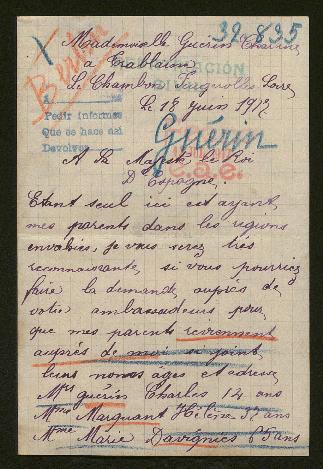 32.835
Mademoiselle Guérin
à Trablaine
Le Chambon Feugerolles Loire
Berlin
Le 18 juin 1917
Pedir informes
Que se hace así
Devolver
Guérin
A Sa Majesté le Roi
D'Espagne.
Etant seul ici et ayant
mes parents dans les régions
envahies, je vous serez très
reconnaissante, si vous pourriez
faire la demande, auprés de
votre ambassadeurs pour
que mes parents reviennent
auprés de moi si joint
leurs noms ages et adresse
guérin Charles 14 ans
Mme Marquant Hélène ans
Mme Marie Davignies 65 ans